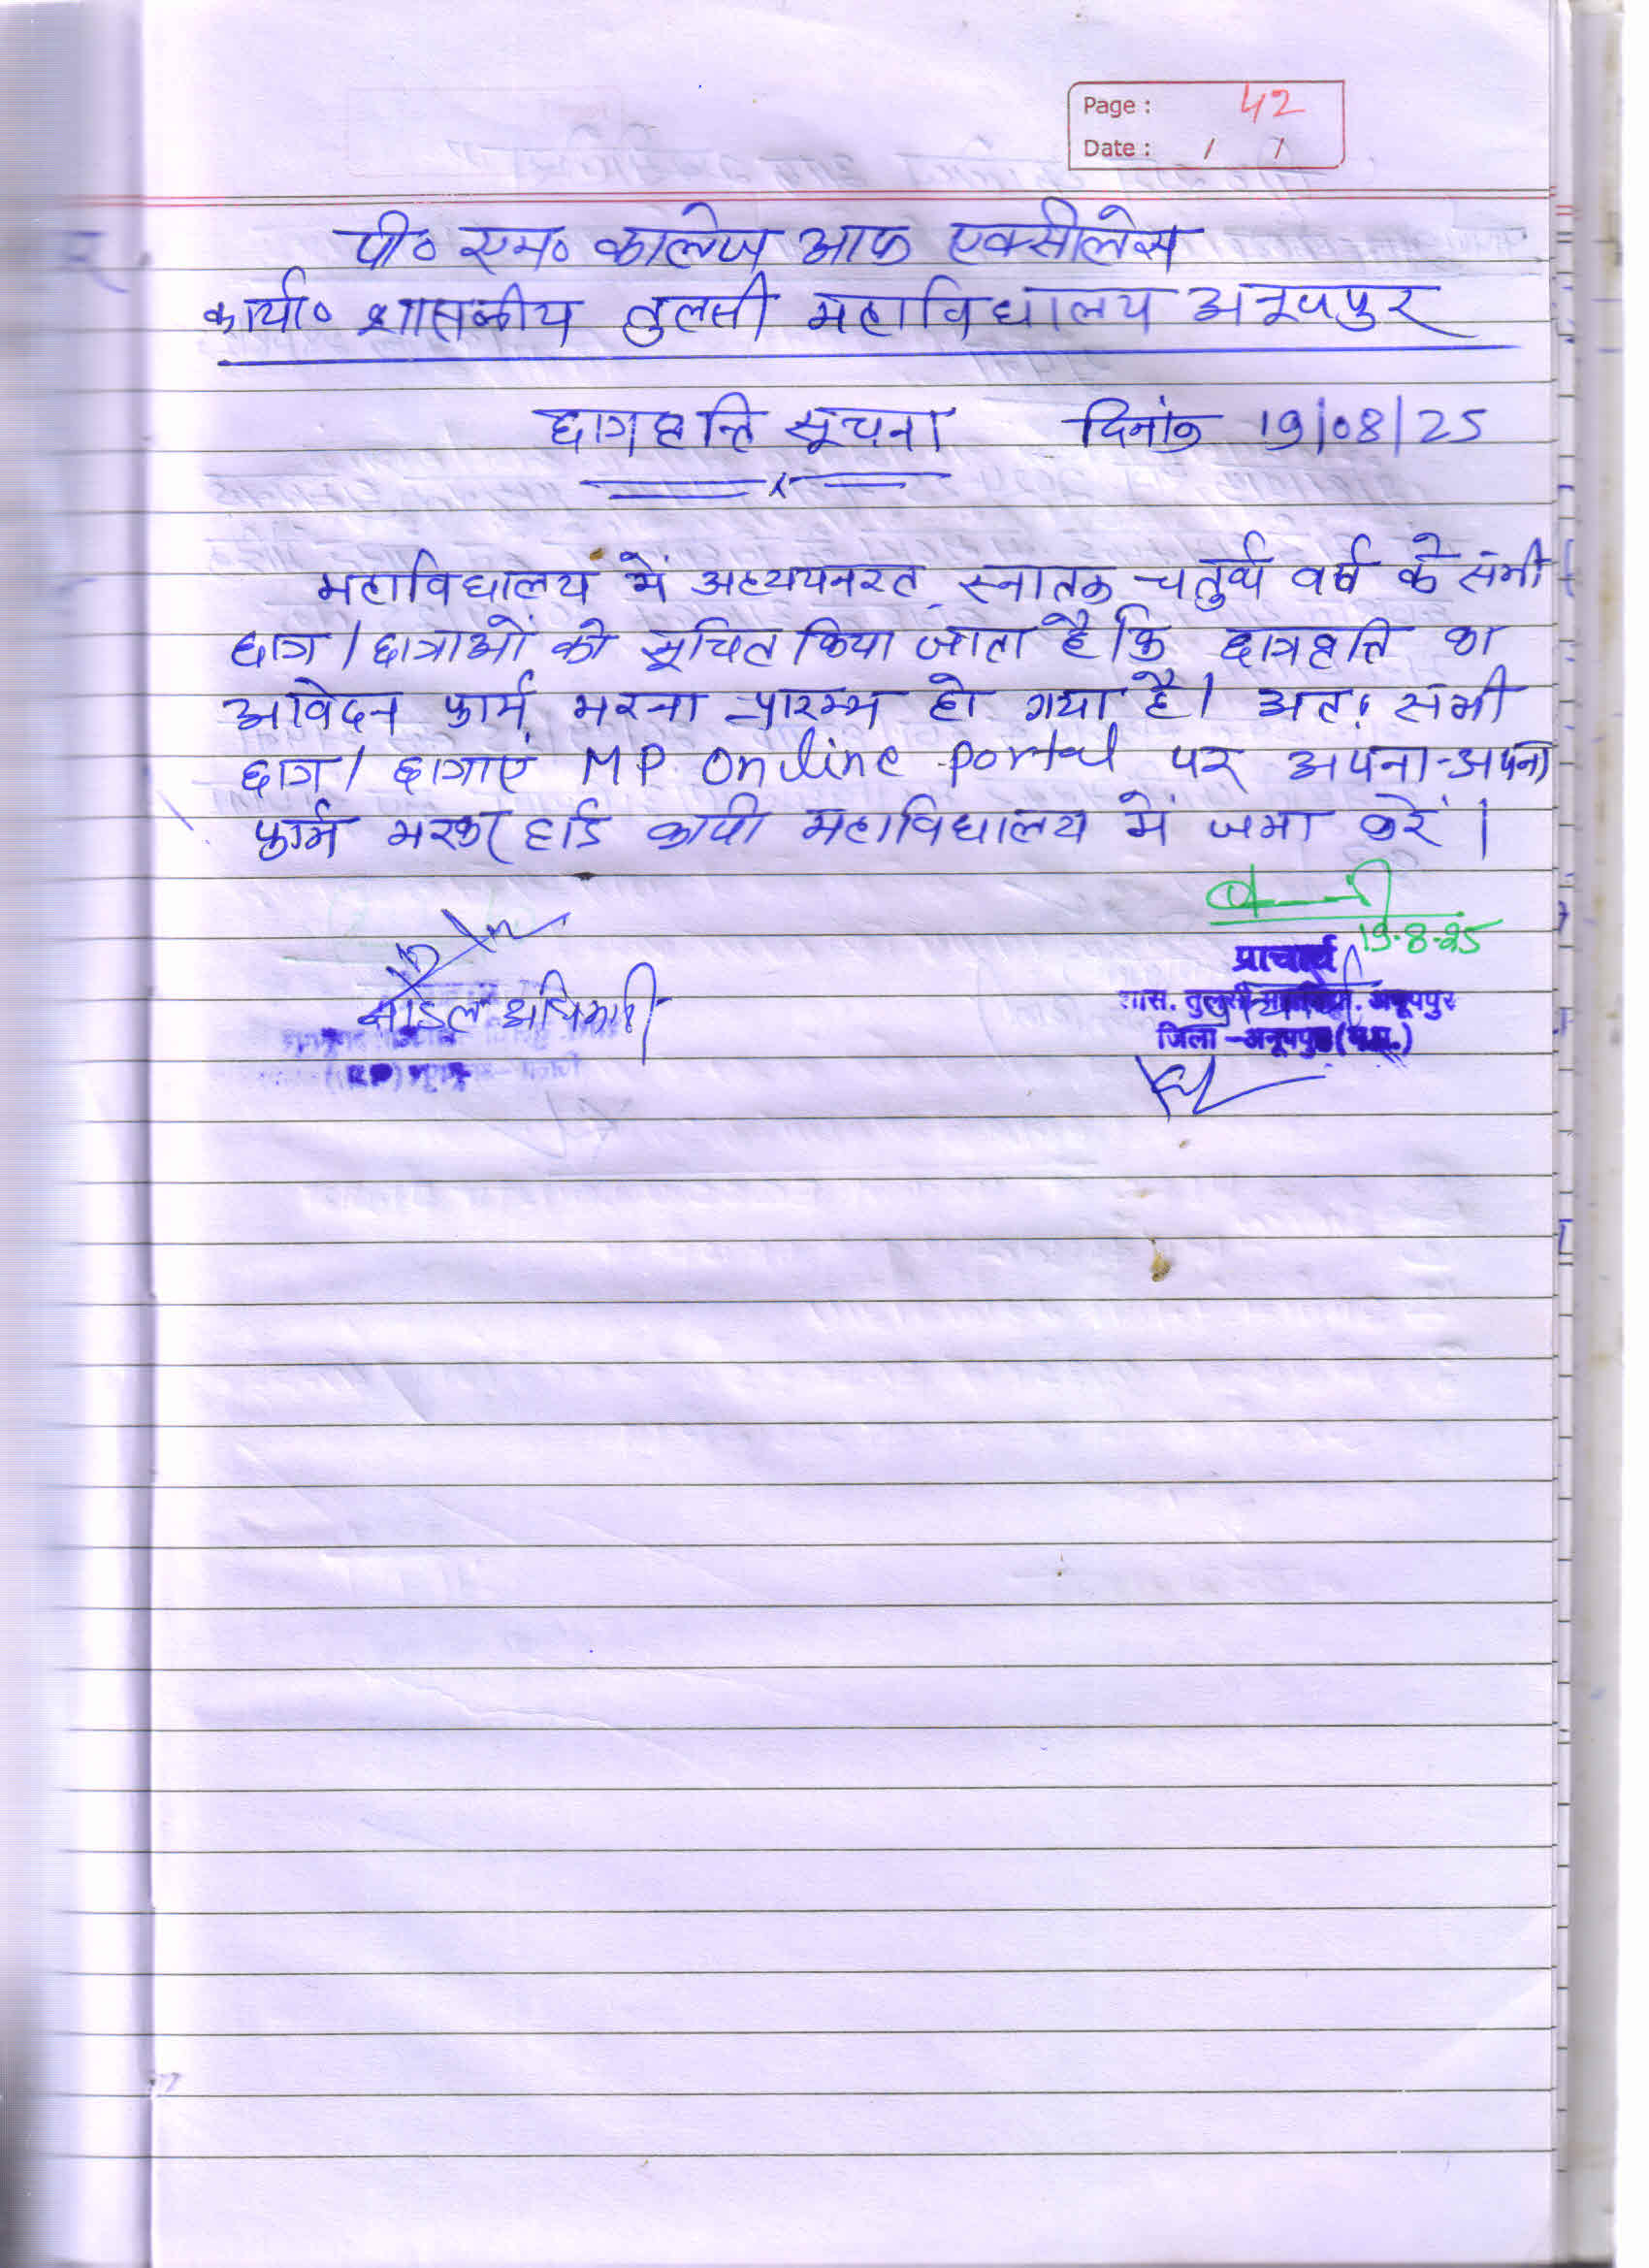 Page : 42
Date : / /
पी० एम० कालेज आफ एक्सीलेन्स
कार्या० शासकीय तुलसी महाविद्यालय अनूपपुर
छात्रवृत्ति सूचना दिनांक 19/08/25
महाविद्यालय में अध्ययनरत स्नातक चतुर्थ वर्ष के सभी
छात्र / छात्राओं को सूचित किया जाता है कि छात्रवृत्ति का
आवेदन फार्म भरना प्रारम्भ हो गया है। अतः सभी
छात्र / छात्राएं MP Online portal पर अपना-अपना
फार्म भरकर हार्ड कापी महाविद्यालय में जमा करें।
19.8.25
नोडल अधिकारी
प्राचार्य
शास. तुलसी महाविद्या. अनूपपुर
जिला-अनूपपुर (म.प्र.)